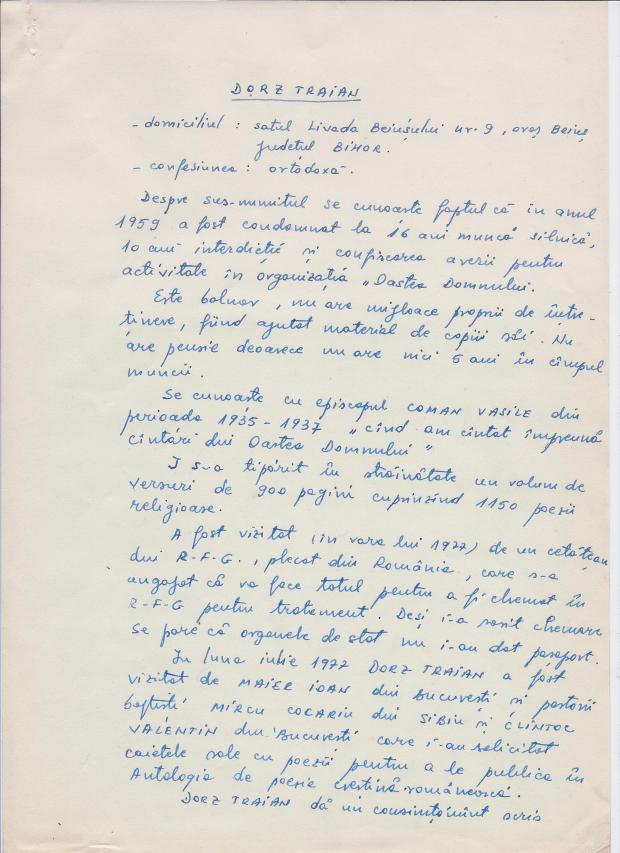 DORZ TRAIAN
- domiciliul : satul Livada Beiușului nr. 9, oraș Beiuș
județul BIHOR.
- confesiunea : ortodoxă.
Despre sus-numitul se cunoaște faptul că în anul
1959 a fost condamnat la 16 ani muncă silnică,
10 ani interdicție și confiscarea averii pentru
activitate în organizația „Oastea Domnului.
Este bolnav, nu are mijloace proprii de între-
ținere, fiind ajutat material de copiii săi. Nu
are pensie deoarece nu are nici 5 ani în cîmpul
muncii.
Se cunoaște cu episcopul COMAN VASILE din
perioada 1935 - 1937 „cînd am cîntat împreună
cîntări din Oastea Domnului"
I s-a tipărit în străinătate un volum de
versuri de 900 pagini cuprinzînd 1150 poezii
religioase.
A fost vizitat (în vara lui 1977) de un cetățean
din R-F-G., plecat din România, care s-a
angajat că va face totul pentru a fi chemat în
R-F-G pentru tratament. Deși i-a sosit chemare
se pare că organele de stat nu i-au dat pașaport.
În luna iulie 1977 DORZ TRAIAN a fost
vizitat de MAIER IOAN din București și pastorii
baptiști MIRCU COCARIU din SIBIU și CLINTOC
VALENTIN din București care i-au solicitat
caietele sale cu poezii pentru a le publica în
Antologia de poezie creștină românească.
DORZ TRAIAN dă un consimțămînt scris